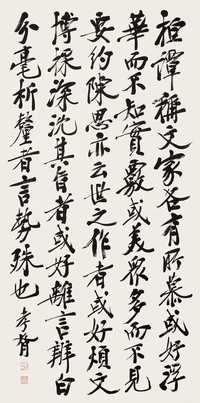 桓譚稱文家各有所慕或好浮
華而不知實覈或美衆多而不見
要約陳思亦云世之作者或好煩文
博採深沈其旨者或好離言辨白
分毫析釐者言勢殊也 孝胥